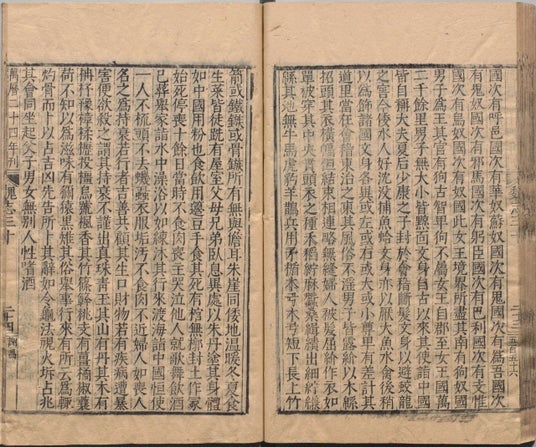 國次有呼邑國次有華奴蘇奴國次有鬼國次有爲吾國次
有鬼奴國次有邪馬國次有躬臣國次有巴利國次有支惟
國次有烏奴國次有奴國此女王境界所盡其南有狗奴國
男子爲王其官有狗古智卑狗不屬女王自郡至女王國萬
二千餘里男子無大小皆黥面文身自古以來其使詣中國
皆自稱大夫夏后少康之子封於會稽斷髮文身以避蛟龍
之害今倭水人好沈没捕魚蛤文身亦以厭大魚水禽後稍
以爲飾諸國文身各異或左或右或大或小尊卑有差計其
道里當在會稽東治之東其風俗不淫男子皆露紒以木緜
招頭其衣橫幅但結束相連略無縫婦人被髮屈紒作衣如
單被穿其中央貫頭衣之種禾稻紵麻蠶桑緝績出細紵縑
緜其地無牛馬虎豹羊鵲兵用矛楯木弓木弓短下長上竹
箭或鐵鏃或骨鏃所有無與儋耳朱崖同倭地溫暖冬夏食
生菜皆徒跣有屋室父母兄弟臥息異處以朱丹塗其身體
如中國用粉也食飲用籩豆手食其死有棺無槨封土作冢
始死停喪十餘日當時不食肉喪主哭泣他人就歌舞飲酒
已葬舉家詣水中澡浴以如練沐其行來渡海詣中國恒使
一人不梳頭不去蟣蝨衣服垢汚不食肉不近婦人如喪人
名之爲持衰若行者吉善共顧其生口財物若有疾病遭暴
害便欲殺之謂其持衰不謹出真珠青玉其山有丹其木有
柟杼豫樟楺櫪投橿烏號楓香其竹篠簳桃支有薑橘椒蘘
荷不知以爲滋味有獮猴黑雉其俗舉事行來有所云爲輒
灼骨而卜以占吉凶先告所卜其辭如令龜法視火坼占兆
其會同坐起父子男女無別人性嗜酒
萬曆二十四年刊 魏志三十 二十四